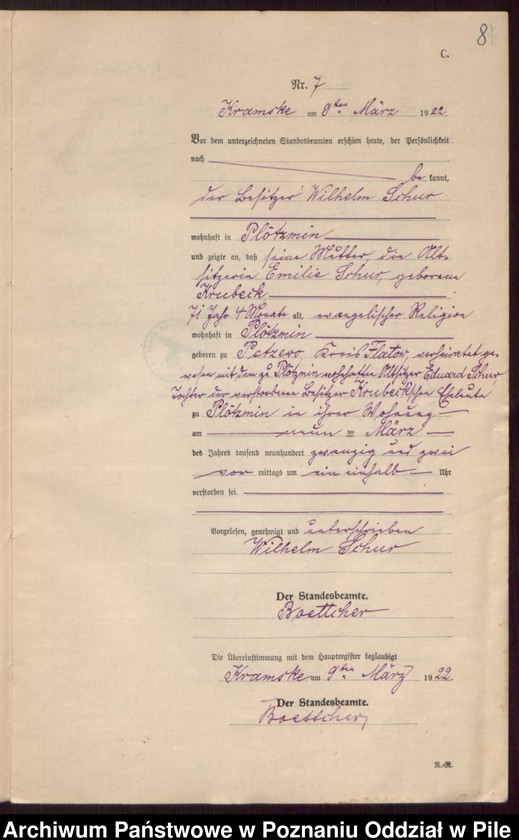 8
C.
Nr. 7
Kramske am 9ten März 1922
Vor dem unterzeichneten Standesbeamten erschien heute, der Persönlichkeit
nach
be kannt,
der Besitzer Wilhelm Schur
wohnhaft in Plötzmin
und zeigte an, daß seine Mutter, die Alt-
sitzerin Emilie Schur, geborene
Krubeck
71 Jahr 4 Monate alt, evangelischer Religion
wohnhaft in Plötzmin
geboren zu Petzewo, Kreis Flatow, verheiratet ge-
wesen mit dem zu Plötzmin wohnhaften Altsitzer Eduard Schur,
Tochter der verstorbenen Besitzer Krubeckschen Eheleute
zu Plötzmin in ihrer Wohnung
am neun ten März
des Jahres tausend neunhundert zwanzig und zwei
vor mittags um ein einhalb Uhr
verstorben sei.
Vorgelesen, genehmigt und unterschrieben
Wilhelm Schur
Der Standesbeamte.
Boettcher
Die Übereinstimmung mit dem Hauptregister beglaubigt
Kramske am 9ten März 1922
Der Standesbeamte.
Boettcher
N.-R.
Archiwum Państwowe w Poznaniu Oddział w Pile